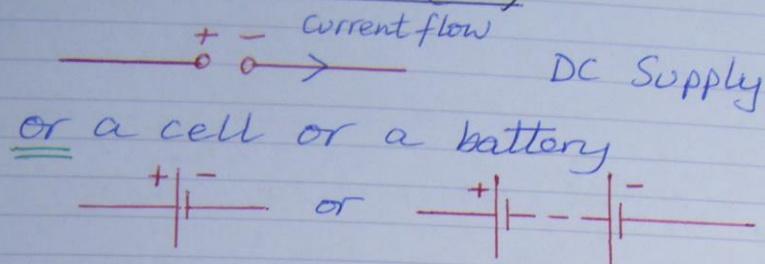 + - Current flow
DC Supply
or a cell or a battery
+ - or + -